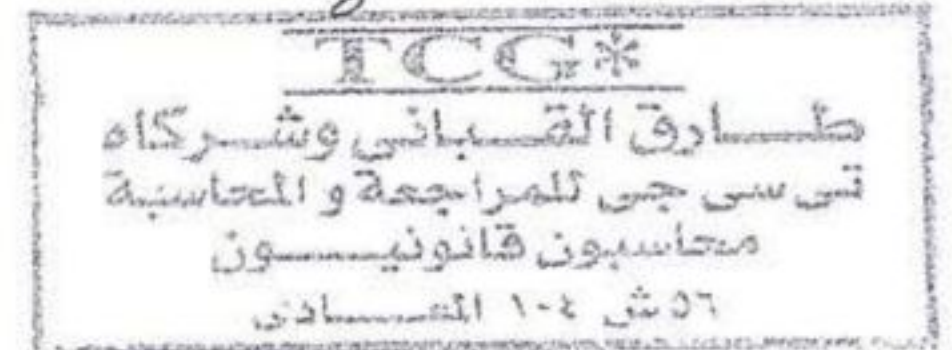 TCG*
طارق القبانى وشركاه
تى سى جى للمراجعة و المحاسبة
محاسبون قانونيون
٥٦ ش ١٠٤ المعادى